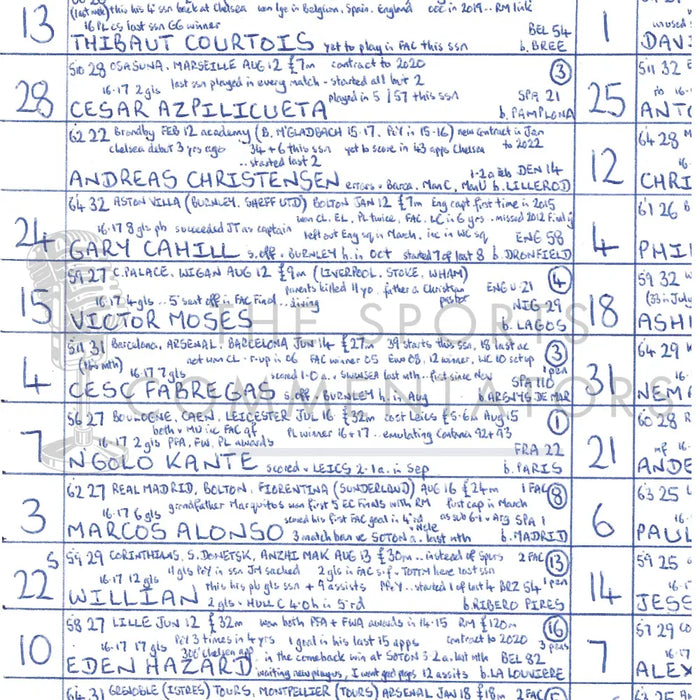 (last week) this his 4th ssn back at Chelsea won lge in Belgium, Spain, England CCC in 2019.. RM link
16 PL CS last ssn GG winner
13 THIBAUT COURTOIS yet to play in FAC this ssn BEL 54 b. BREE 1 DAVI
510 28 OSASUNA, MARSEILLE AUG 12 £7m contract to 2020 3
16-17 2 gls last ssn played in every match - started all but 2
28 CESAR AZPILICUETA played in 51/57 this ssn SPA 21 b. PAMPLONA 25 ANTO
62 22 Brondby FEB 12 academy (B. M'GLADBACH 15-17. PSY in 15-16) new contract in Jan to 2022
Chelsea debut 3 yrs ago 34+6 this ssn yet to score in 43 apps Chelsea
.. started last 2
12 ANDREAS CHRISTENSEN errors v Barca, Man C, Man U DEN 14 b. LILLEROD CHRI
64 32 ASTON VILLA (BURNLEY, SHEFF UTD) BOLTON JAN 12 £7m Eng capt first time in 2015
won CL, EL, PL twice, FAC, LC in 6 yrs - missed 2012 Final inj
16-17 8 gls pb succeeded JT as captain left out Eng sq in March, inc in WC sq ENG 58
24 GARY CAHILL s.off v BURNLEY h. in Oct started 7 of last 8 b. DRONFIELD 4 PHIL
59 27 C.PALACE, WIGAN AUG 12 £9m (LIVERPOOL, STOKE, WHAM) 4
parents killed 11 yo. father a Christian pastor ENG U-21
16-17 4 gls .. 5th sent off in FAC Final .. diving NIG 29
15 VICTOR MOSES b. LAGOS 18 ASHL
511 31 Barcelona, ARSENAL, BARCELONA JUN 14 £27m 39 starts this ssn, 18 last ac 3
(this mth) not won CL - r-up in 06 FAC winner 05 Euro 08, 12 winner, WC 10 setup 1 pen
16-17 7 gls scored 1-0 a. SWANSEA last mth - first since Nov SPA 110
4 CESC FABREGAS s.off v BURNLEY h. in Aug b. ARENYS DE MAR 31 NEM
56 27 BOULOGNE, CAEN, LEICESTER JUL 16 £32m cost Leics £5.6m Aug 15 1
both v MU inc FAC qf PL winner 16+17 .. emulating Cantona 92+93
16-17 2 gls PFA, FW, PL awards FRA 22
7 N'GOLO KANTE scored v LEICS 2-1 a. in Sep b. PARIS 21 ANDE
62 27 REAL MADRID, BOLTON, FIORENTINA (SUNDERLAND) AUG 16 £24m 1 FAC 8
grandfather Marquitos won first 5 EC Finals with RM first cap in March
16-17 6 gls scored his first FAC goal in 4th rd as sub 6-1 v ARG SPA 1
3 MARCOS ALONSO 3 match ban v SOTON a. last mth b. MADRID 6 PAUL
59 29 CORINTHIAS, S.DONETSK, ANZHI MAK AUG 13 £30m .. instead of Spurs 2 FAC 13
11 gls PSY in ssn JM sacked 2 gls in FAC s.f - TOTTM here last ssn 1 pen
16-17 12 gls this his pb gls ssn + 9 assists started 1 of last 4 BRZ 54
22 S WILLIAN 2 gls v HULL C 4-0 h in 5th rd b. RIBERO PIRES 14 JESS
58 27 LILLE JUN 12 £32m won both PFA + FWA awards in 14-15 RM £120m 16
PSY 3 times in 4 yrs 1 goal in his last 15 apps contract to 2020 3 pens
16-17 17 gls 300th Chelsea app in the comeback win at SOTON 3-2 a. last mth BEL 82
10 EDEN HAZARD waiting new players, I want good progs 12 assists b. LA LOUVIERE 7 ALEX
64 31 GRENOBLE (ISTRES) TOURS, MONTPELLIER (TOURS) ARSENAL JAN 18 £18m 2 FAC
THE SPORTS COMMENTATORS